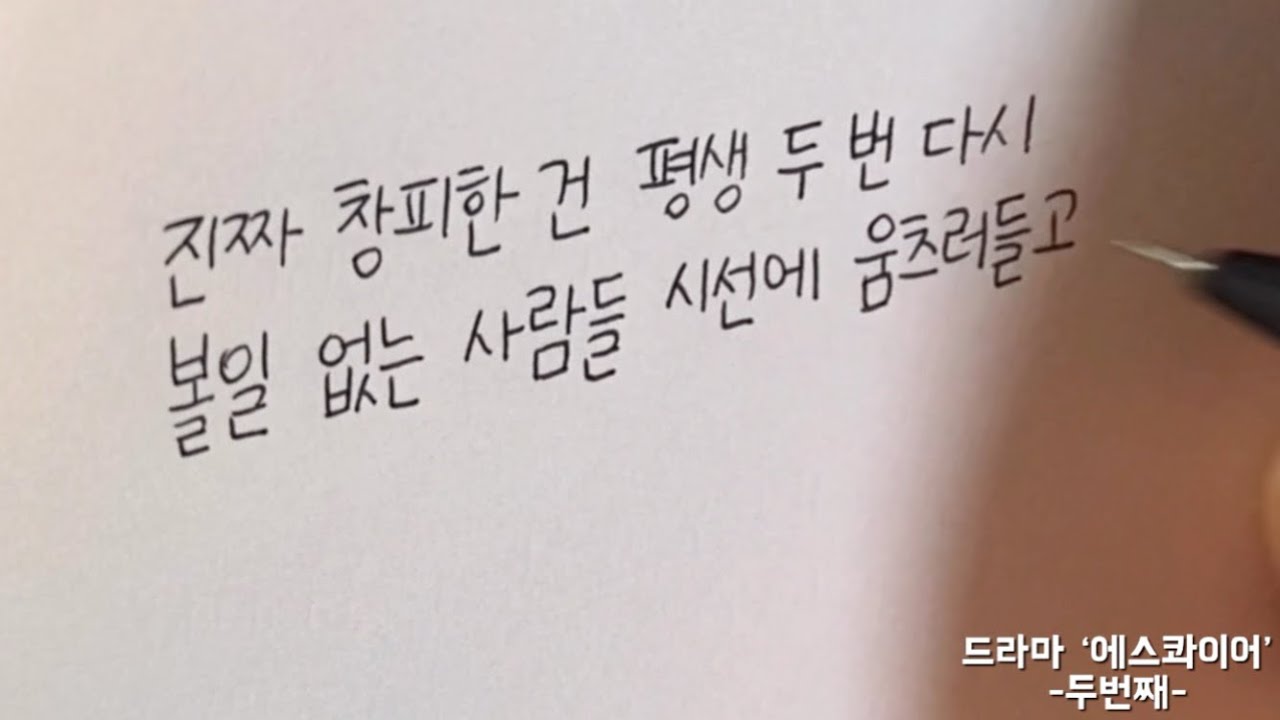 진짜 창피한 건 평생 두 번 다시
볼일 없는 사람들 시선에 움츠러들고
드라마 ‘에스콰이어’
-두번째-